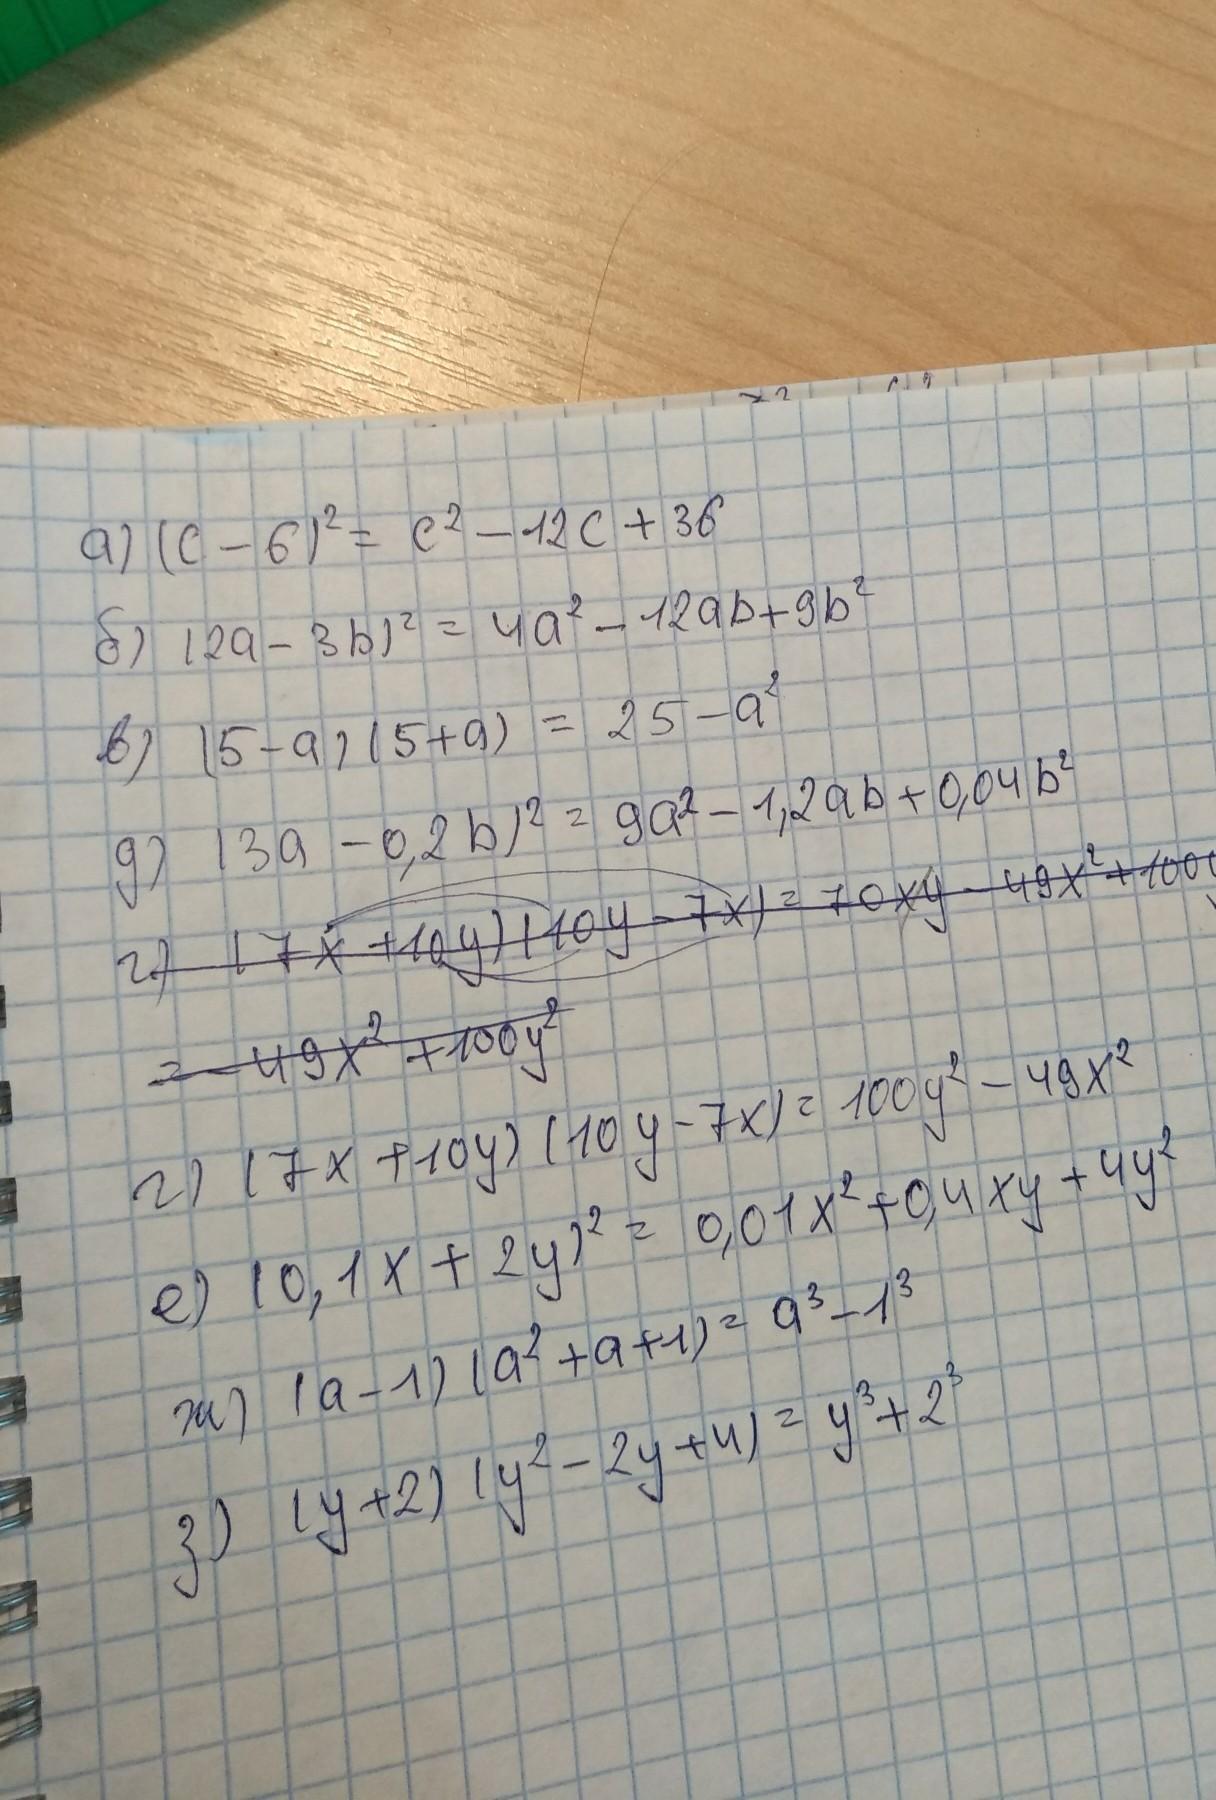 а) (c - 6)² = c² - 12c + 36
б) (2a - 3b)² = 4a² - 12ab + 9b²
в) (5 - a)(5 + a) = 25 - a²
д) (3a - 0,2b)² = 9a² - 1,2ab + 0,04b²
г) (7x + 10y)(10y - 7x) = 70xy - 49x² + 100
= - 49x² + 100y²
г) (7x + 10y)(10y - 7x) = 100y² - 49x²
е) (0,1x + 2y)² = 0,01x² + 0,4xy + 4y²
ж) (a - 1)(a² + a + 1) = a³ - 1³
з) (y + 2)(y² - 2y + 4) = y³ + 2³